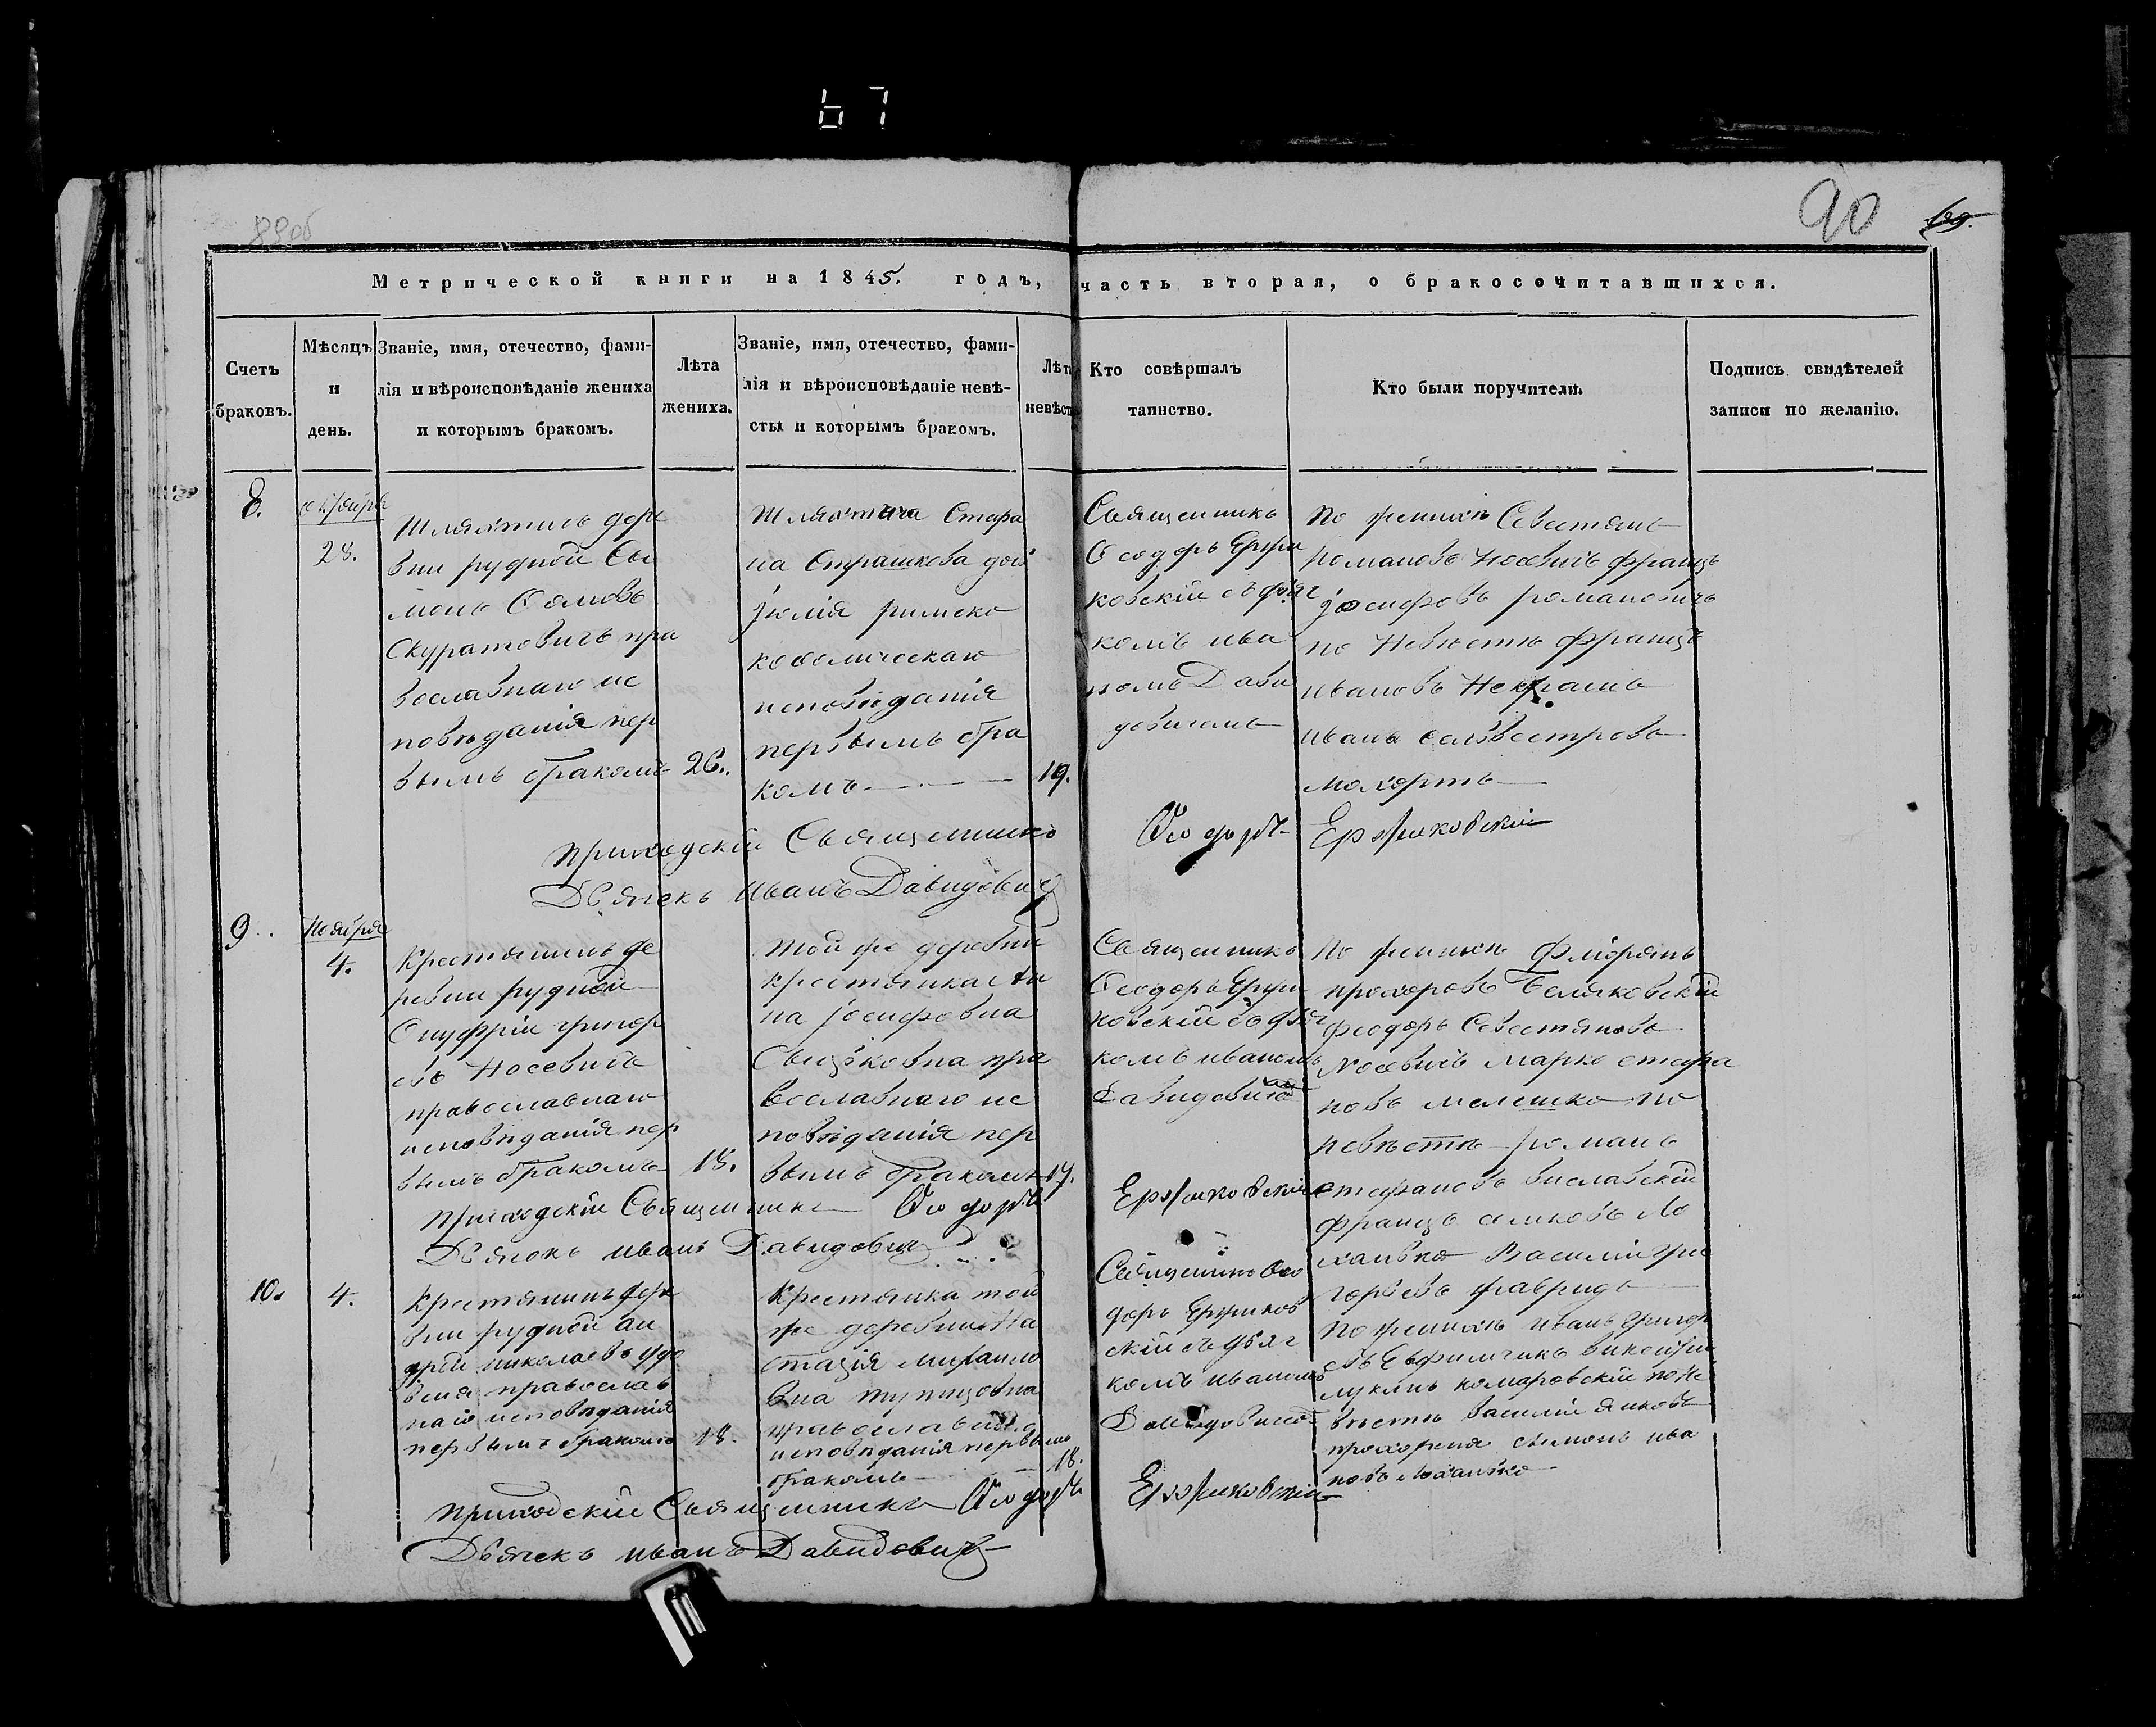 67
89об
90
Метрической книги на 1845. годъ, часть вторая, о бракосочитавшихся.
Счетъ браковъ.
Мѣсяцъ и день.
Званіе, имя, отечество, фами-
лія и вѣроисповѣданіе жениха
и которымъ бракомъ.
Лѣта жениха.
Званіе, имя, отечество, фами-
лія и вѣроисповѣданіе невѣ-
сты и которымъ бракомъ.
Лѣта невѣст
Кто совѣршалъ
таинство.
Кто были поручители.
Подпись свидѣтелей
записи по желанію.
8.
октября
28.
Шляхтичъ дере
вни рудной Си
монъ
Скуратовичъ пра
вославнаго ис
повѣданія пер
вымъ бракомъ
26.
Шляхтича Стефа
на Страшкова дочь
Юлія римско
кафолическаго
исповѣданія
первымъ бра
комъ
19.
Священникъ
Ѳеодоръ Ержи
ковскій съ дьяч
комъ ива
номъ Дави
довичемъ
По женихѣ Севастіянъ
романовъ Носевичъ францъ
Іосифовъ романовичъ
по Невѣстѣ Францъ
ивановъ Некрашъ
иванъ селвестровъ
мохортъ
приходскій Священникъ Ѳеодоръ Ержиковскій
Дьячекъ иванъ Давидовичъ
9.
Ноября
4.
Крестьянинъ де
ревни рудной
Онуфрій григор
евъ Носевичъ
православнаго
исповѣданія пер
вымъ бракомъ
18.
той же деревни
крестьянка Ан
на Іосифовна
пра
вославнаго ис
повѣданія пер
вымъ бракомъ
17.
Священникъ
Ѳеодоръ Ержи
ковскій съ дьяч
комъ иваномъ
Давидовичемъ
По женихѣ Флоріянъ
прохоровъ Беляковскій
феодоръ Севастяновъ
Носевичъ Марко стефа
новъ мелешко по
невѣстѣ романъ
стефановъ виславскій
францъ ло
ханько Василій гри
горьевъ гавридъ
приходскій Священникъ Ѳеодоръ Ержиковскій
Дьячокъ иванъ Давидовичъ
10.
4.
Крестьянинъ дере
вни рудной ан
дрей николаевъ
православ
наго исповѣданія
первымъ бракомъ
18.
Крестьянка той
же деревни На
стазія михаило
вна
православнаго
исповѣданія первымъ
бракомъ
18.
Священникъ Ѳео
доръ Ержиков
скій съ дьяч
комъ иваномъ
Давидовичемъ
По женихѣ иванъ григор
евъ Евфимчикъ викентій
лукинъ комаровскій по не
вѣстѣ василій янковъ
прохореня симонъ ива
новъ лоханько
приходскій Священникъ Ѳеодоръ Ержиковскій
Дьячекъ иванъ Давидовичъ